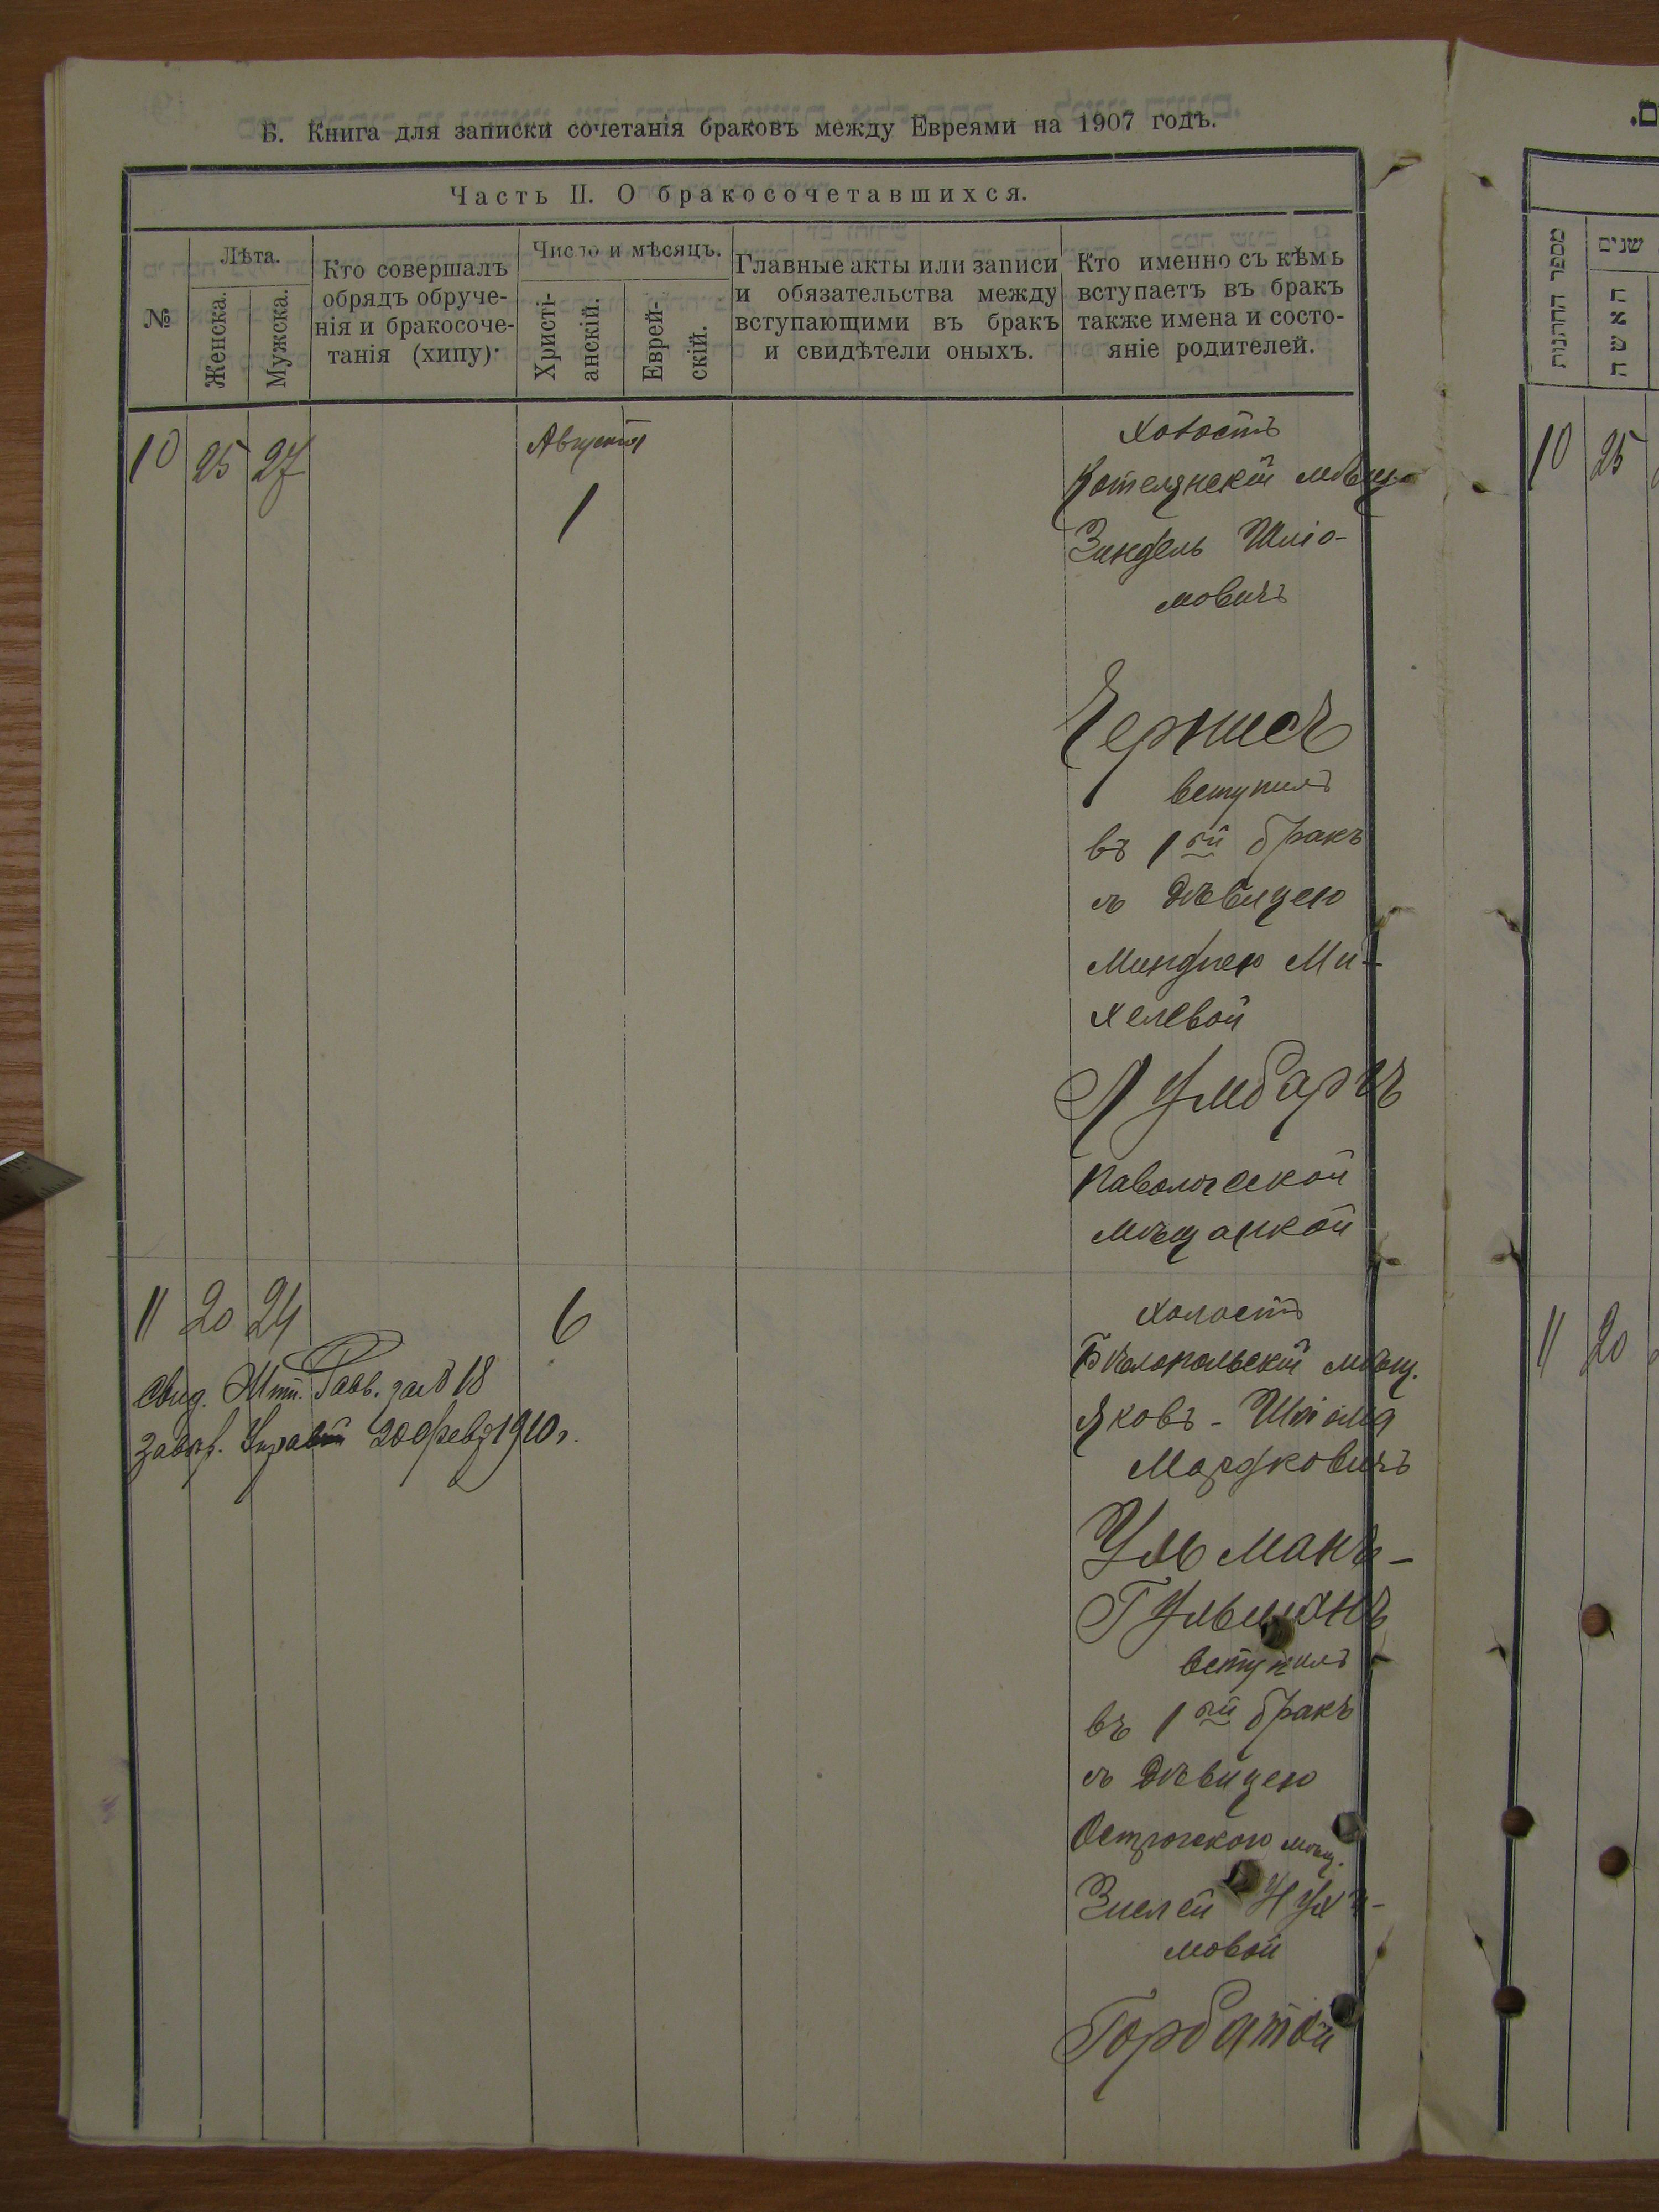 Б. Книга для записки сочетанія браковъ между Евреями на 1907 годъ.
Часть II. О бракосочетавшихся.
№
Лѣта.
Женска.
Мужска.
Кто совершалъ
обрядъ обруче-
нія и бракосоче-
танія (хипу).
Число и мѣсяцъ.
Христі-
анскій.
Еврей-
скій.
Главные акты или записи
и обязательства между
вступающими въ бракъ
и свидѣтели оныхъ.
Кто именно съ кѣмъ
вступаетъ въ бракъ
также имена и состо-
яніе родителей.
10 25 27
Августа
1
Холостъ
Котелянскій мѣщ.
Зиндель Шліо-
мовичъ
Чернисъ
вступилъ
въ 1ый бракъ
съ дѣвицею
Миндлею Ми-
хелевой
Лумбаръ
Паволочской
мѣщанкой
11 20 24
6
Свид. Раввъ. за № 18
20 февр 1910 г.
Холостъ
Бѣлопольскій мѣщ.
Яковъ-Шліома
Мордковичъ
Ульманъ-
Гульманъ
вступилъ
въ 1ый бракъ
съ дѣвицею
Острогскою мѣщ.
Зислей Нухи-
мовой
Горбатой
מספר החתונות
שנים
האשה
10 25
11 20